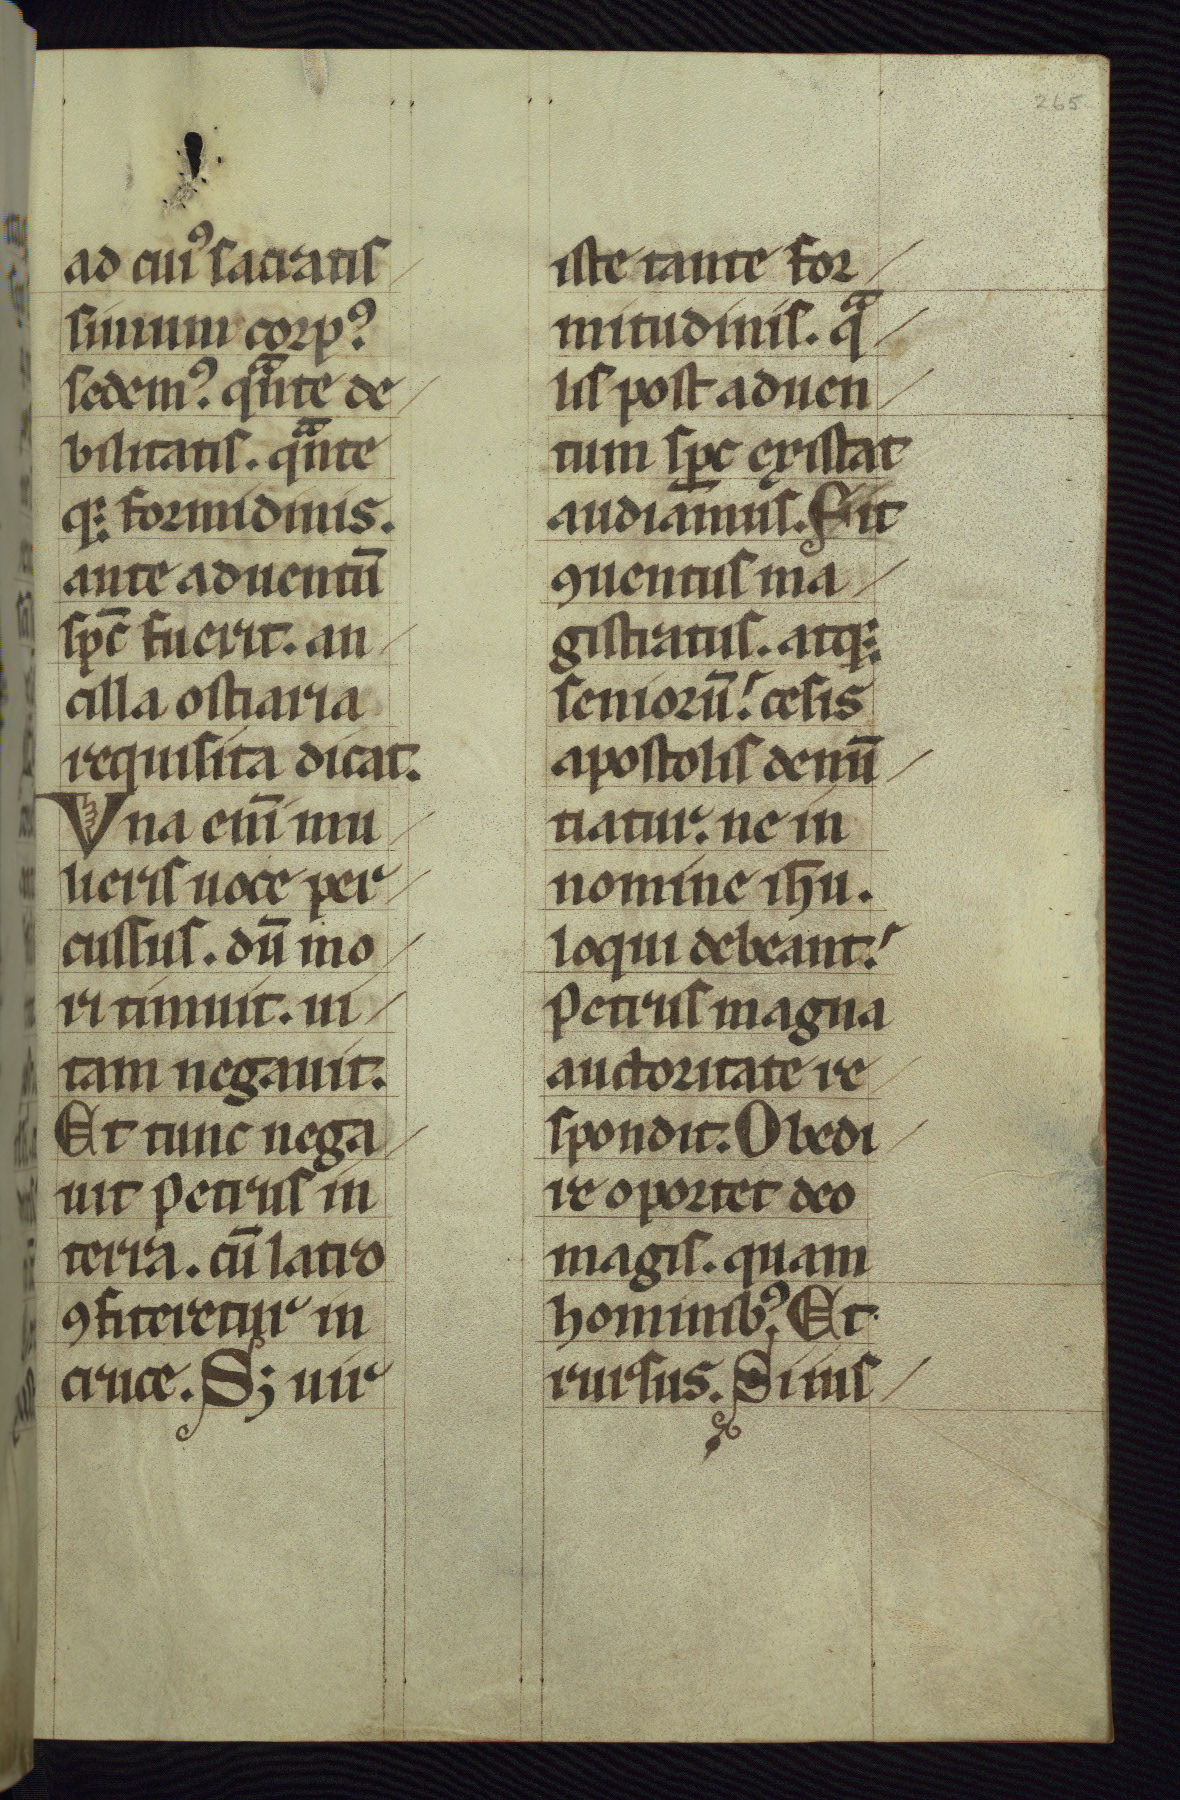 265
ad cuiꝰ sacratis
simum corpꝰ
sedemꝰ. qᷓnte de
bilitatis. qᷓnte
qꝫ formidinis.
ante aduentū
spc̄ fuerit. an
cilla ostiaria
requisita dicat.
Vna eni̅ mu
lieris uoce per
cussus. dū mo
ri timuit. ui
tam negauit.
Et tunc nega
uit Petrus in
terra. cū latro
ꝯfiteretur in
cruce. Sꝫ uir
iste tante for
mitudinis. qᷓ
lis post aduen
tum sp̱c existat
audiamus. Fit
ꝯuentus ma
gistratus. atqꝫ
seniorū! cesis
apostolis denū
tiatur. ne in
nomine ih̅u.
loqui debeant!
Petrus magna
auctoritate re
spondit. Obedi
re oportet deo
magis. quam
hominibꝰ. Et
rursus. Si ius